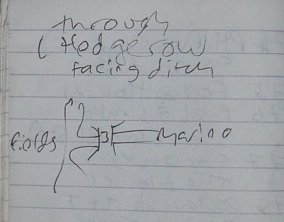 through
( Hedgerow
facing ditch
fields
Marino